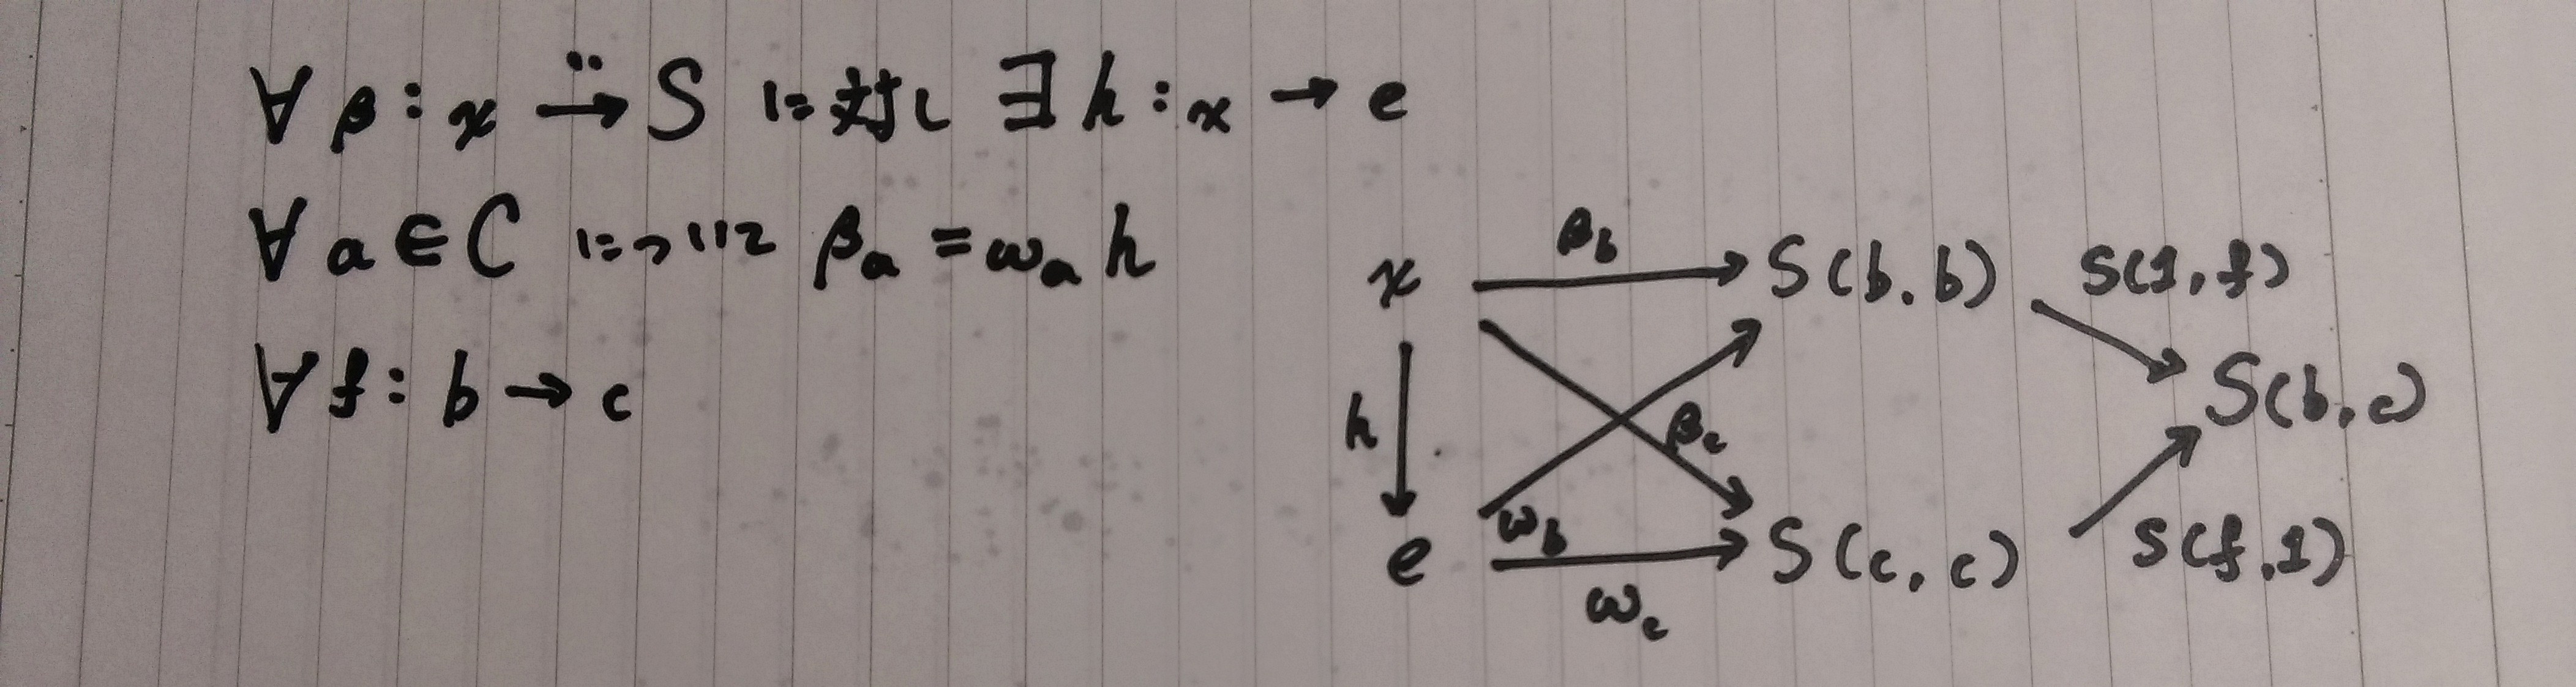 ∀β : x →̈ S に対し ∃h : x → e
∀a ∈ C について β_a = ω_a h
∀f : b → c
x β_b S(b, b) S(1, f)
h β_c S(b, c)
e ω_b S(c, c) S(f, 1)
ω_c